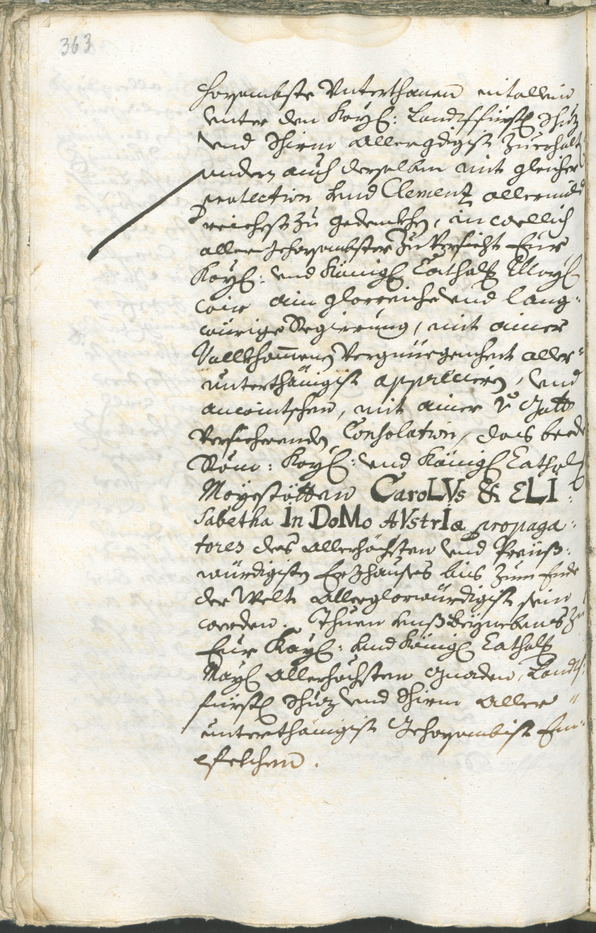 363
horsambste Unterthanen mit allein
unter den Kayl: Landtsfürstl Schuz
und Schirm allergdigst zu erhalten
sondern auch derselben mit gleicher
protection und Clementz allermildt
reichest zu gedenkhen, in
allergehorsambster Zuversicht Euer
Kayl: und Königl Cathol: Mayl
wir ain glorreiche und lang-
würige Regierung, mit ainer
Vollkhommenen Vergnüegenheit aller-
unterthänigist appreciern, und
anwintschen, mit ainer V Gott
Versicherenden Consolation, das beede
Röm: Kayl: und Königl Cathol:
Mayestötten CaroLVs & ELI:
Sabetha In DoMo AVstrIa propaga:
tores des allerhöchsten und Preiß-
würdigisten Erzhauses bis zum Ende
der Welt allerglorwürdigist sein
werden. Thuen unß beynebens zu
Euer Kayl: und Königl Cathol:
Mayl allerhöchsten Gnaden, Landts-
fürstl Schuz und Schirm aller-
unterthänigist gehorsambist Em-
pfelchen.